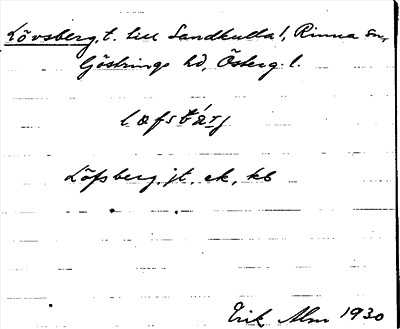 Lövsberg, t. till Sandkulla 1, Rinna sn,
Göstrings hd, Österg. l.
Löfsberg jt, ek, kb
Erik Alm 1930